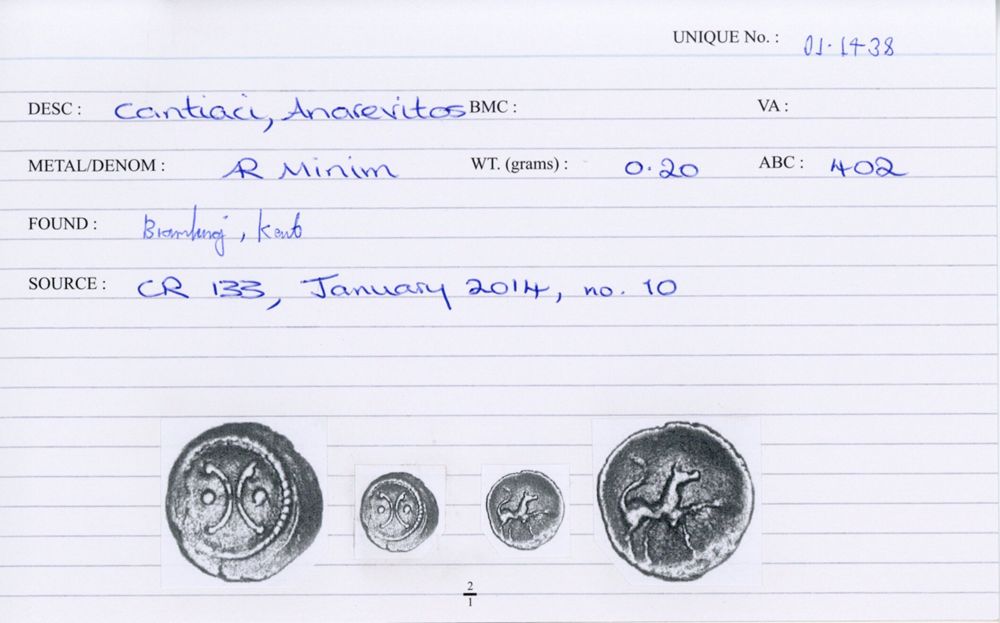 UNIQUE No. : 01-1438
DESC : Cantiaci, Anarevitos BMC : VA :
METAL/DENOM : AR Minim WT. (grams) : 0.20 ABC : 402
FOUND : , Kent
SOURCE : CR 133, January 2014, no. 10
2
1